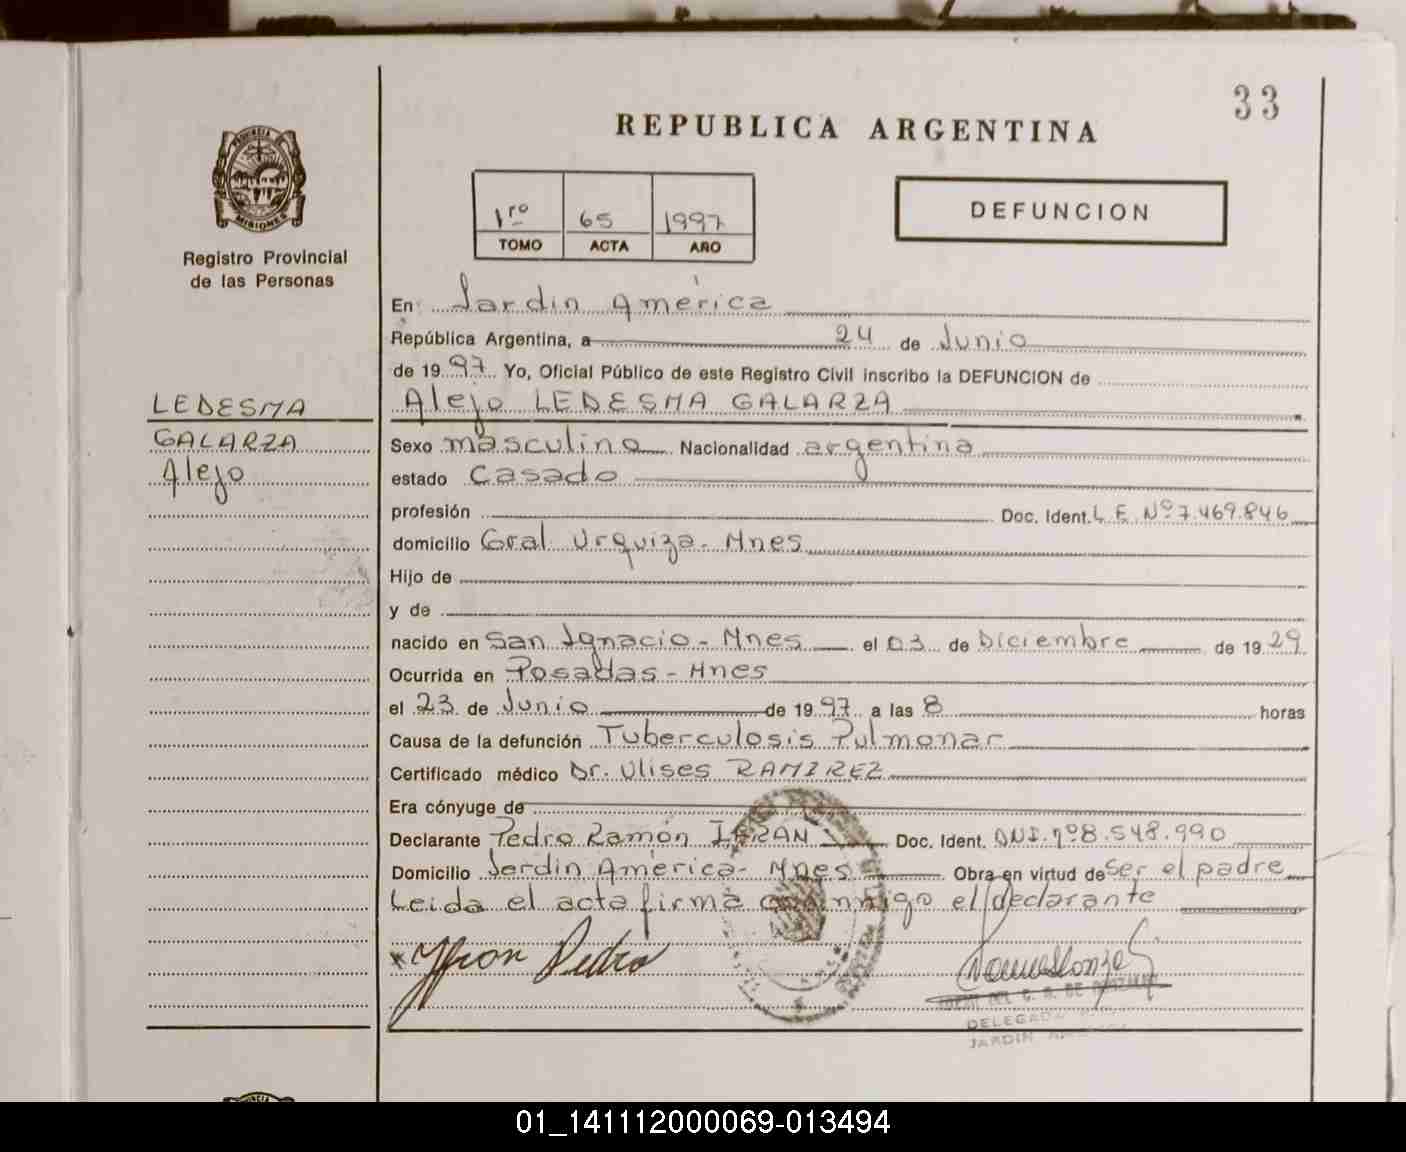 33
REPUBLICA ARGENTINA
PROVINCIA DE
MISIONES
Registro Provincial
de las Personas
1ro 65 1997
TOMO ACTA AÑO
DEFUNCION
En Jardin América
República Argentina, a 24 de Junio
de 1997 Yo, Oficial Público de este Registro Civil inscribo la DEFUNCION de
Alejo LEDESMA GALARZA
LEDESMA
GALARZA
Alejo
Sexo masculino Nacionalidad argentina
estado Casado
profesión Doc. Ident. L.E. Nº 7.469.846
domicilio Gral Urquiza - Mnes
Hijo de
y de
nacido en San Ignacio - Mnes el 03 de Diciembre de 1929
Ocurrida en Posadas - Mnes
el 23 de Junio de 1997 a las 8 horas
Causa de la defunción Tuberculosis Pulmonar
Certificado médico Dr. Ulises RAMIREZ
Era cónyuge de
Declarante Pedro Ramón Doc. Ident. DNI. nº 8.548.990
Domicilio Jardin América - Mnes Obra en virtud de ser el padre
Leida el acta firma conmigo el declarante
Pedro
DELEGADA
JARDIN
01_141112000069-013494